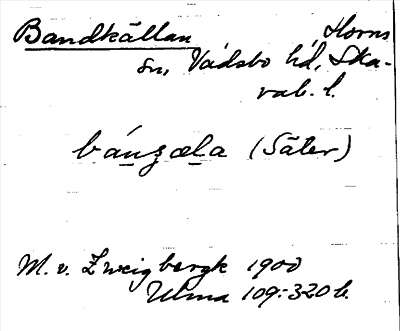 Bandkällan Horns
sn, Vadsbo hd, Ska-
rab. l.
bánʒæla (Säter)
M. v. Zweigbergk 1900
Ulma 109:320 b.